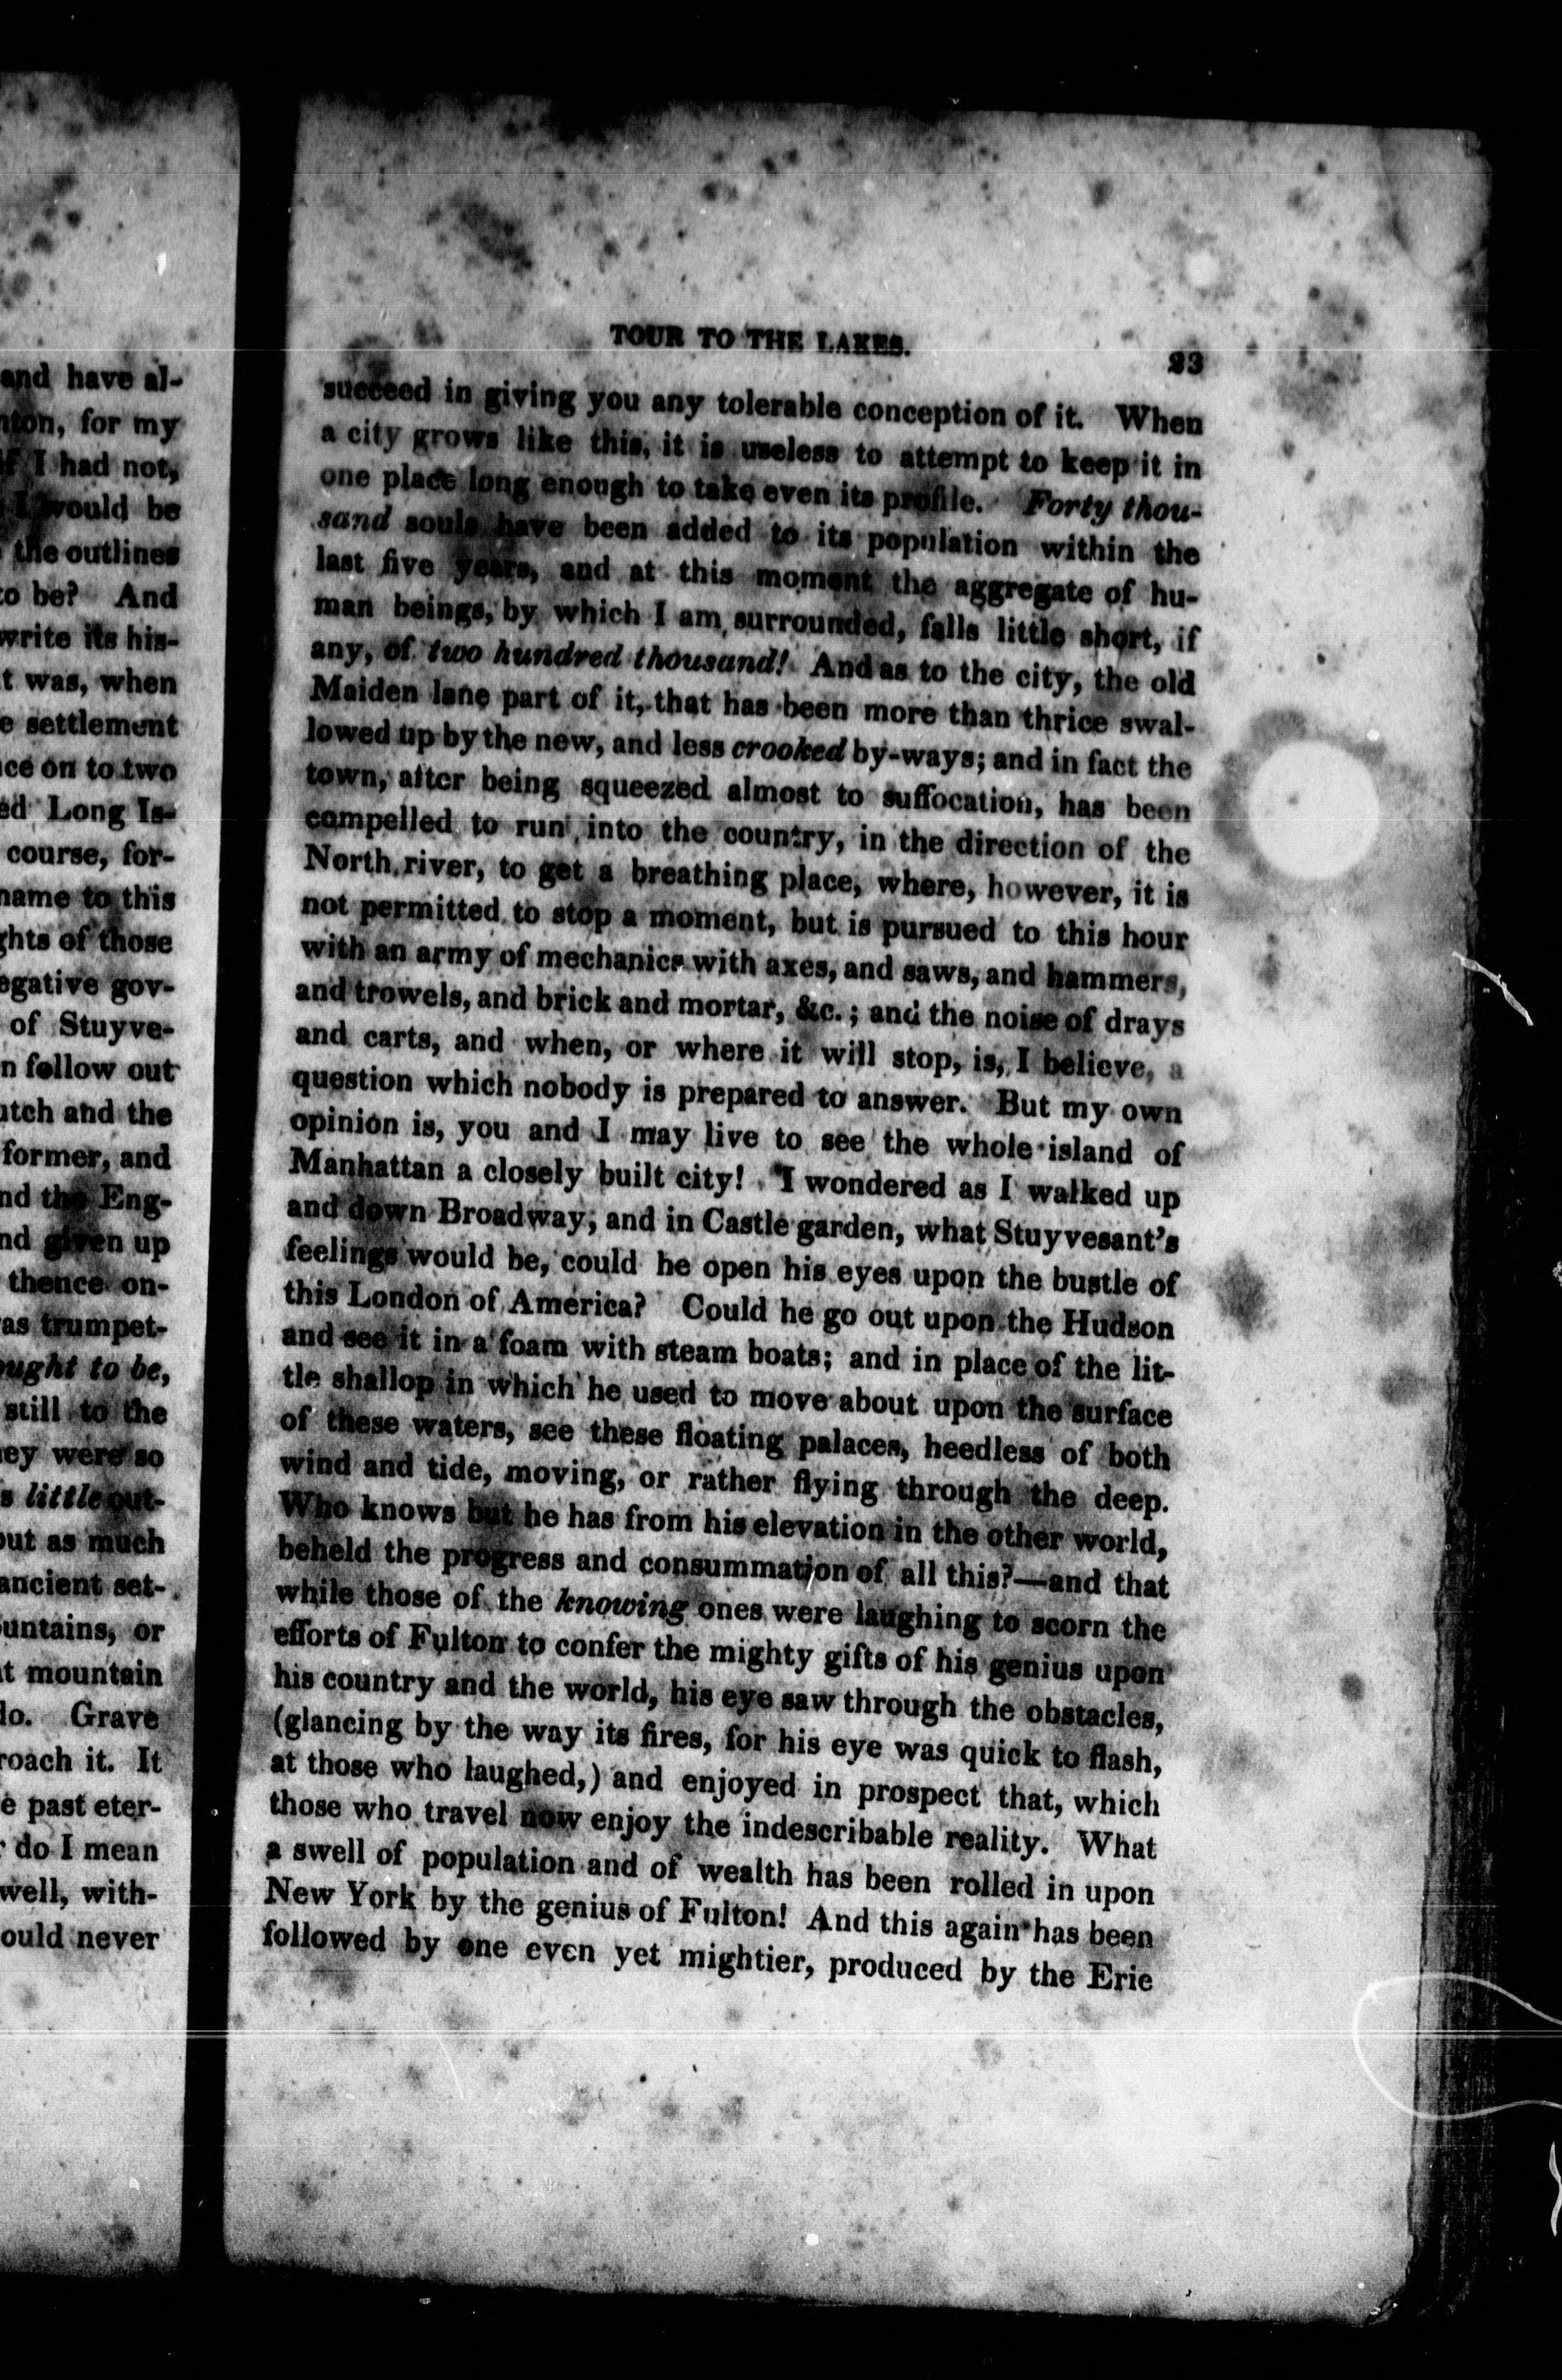 and have al-
for my
I had not,
would be
the outlines
to be? And
write its his-
was, when
settlement
on to two
Long Is-
course, for-
name to this
of those
gov-
of Stuyve-
follow out
and the
former, and
the Eng-
given up
thence on-
as trumpet-
ought to be,
still to the
were so
little out-
as much
ancient set-
or
mountain
Grave
it. It
past eter-
do I mean
well, with-
never
TOUR TO THE LAKES.
23
succeed in giving you any tolerable conception of it. When
a city grows like this, it is useless to attempt to keep it in
one place long enough to take even its profile. Forty thou-
sand souls have been added to its population within the
last five years, and at this moment the aggregate of hu-
man beings, by which I am surrounded, falls little short, if
any, of two hundred thousand! And as to the city, the old
Maiden lane part of it, that has been more than thrice swal-
lowed up by the new, and less crooked by-ways; and in fact the
town, after being squeezed almost to suffocation, has been
compelled to run into the country, in the direction of the
North river, to get a breathing place, where, however, it is
not permitted to stop a moment, but is pursued to this hour
with an army of mechanics with axes, and saws, and hammers,
and trowels, and brick and mortar, &c.; and the noise of drays
and carts, and when, or where it will stop, is, I believe, a
question which nobody is prepared to answer. But my own
opinion is, you and I may live to see the whole island of
Manhattan a closely built city! I wondered as I walked up
and down Broadway, and in Castle garden, what Stuyvesant's
feelings would be, could he open his eyes upon the bustle of
this London of America? Could he go out upon the Hudson
and see it in a foam with steam boats; and in place of the lit-
tle shallop in which he used to move about upon the surface
of these waters, see these floating palaces, heedless of both
wind and tide, moving, or rather flying through the deep.
Who knows but he has from his elevation in the other world,
beheld the progress and consummation of all this?—and that
while those of the knowing ones were laughing to scorn the
efforts of Fulton to confer the mighty gifts of his genius upon
his country and the world, his eye saw through the obstacles,
(glancing by the way its fires, for his eye was quick to flash,
at those who laughed,) and enjoyed in prospect that, which
those who travel now enjoy the indescribable reality. What
a swell of population and of wealth has been rolled in upon
New York by the genius of Fulton! And this again has been
followed by one even yet mightier, produced by the Erie